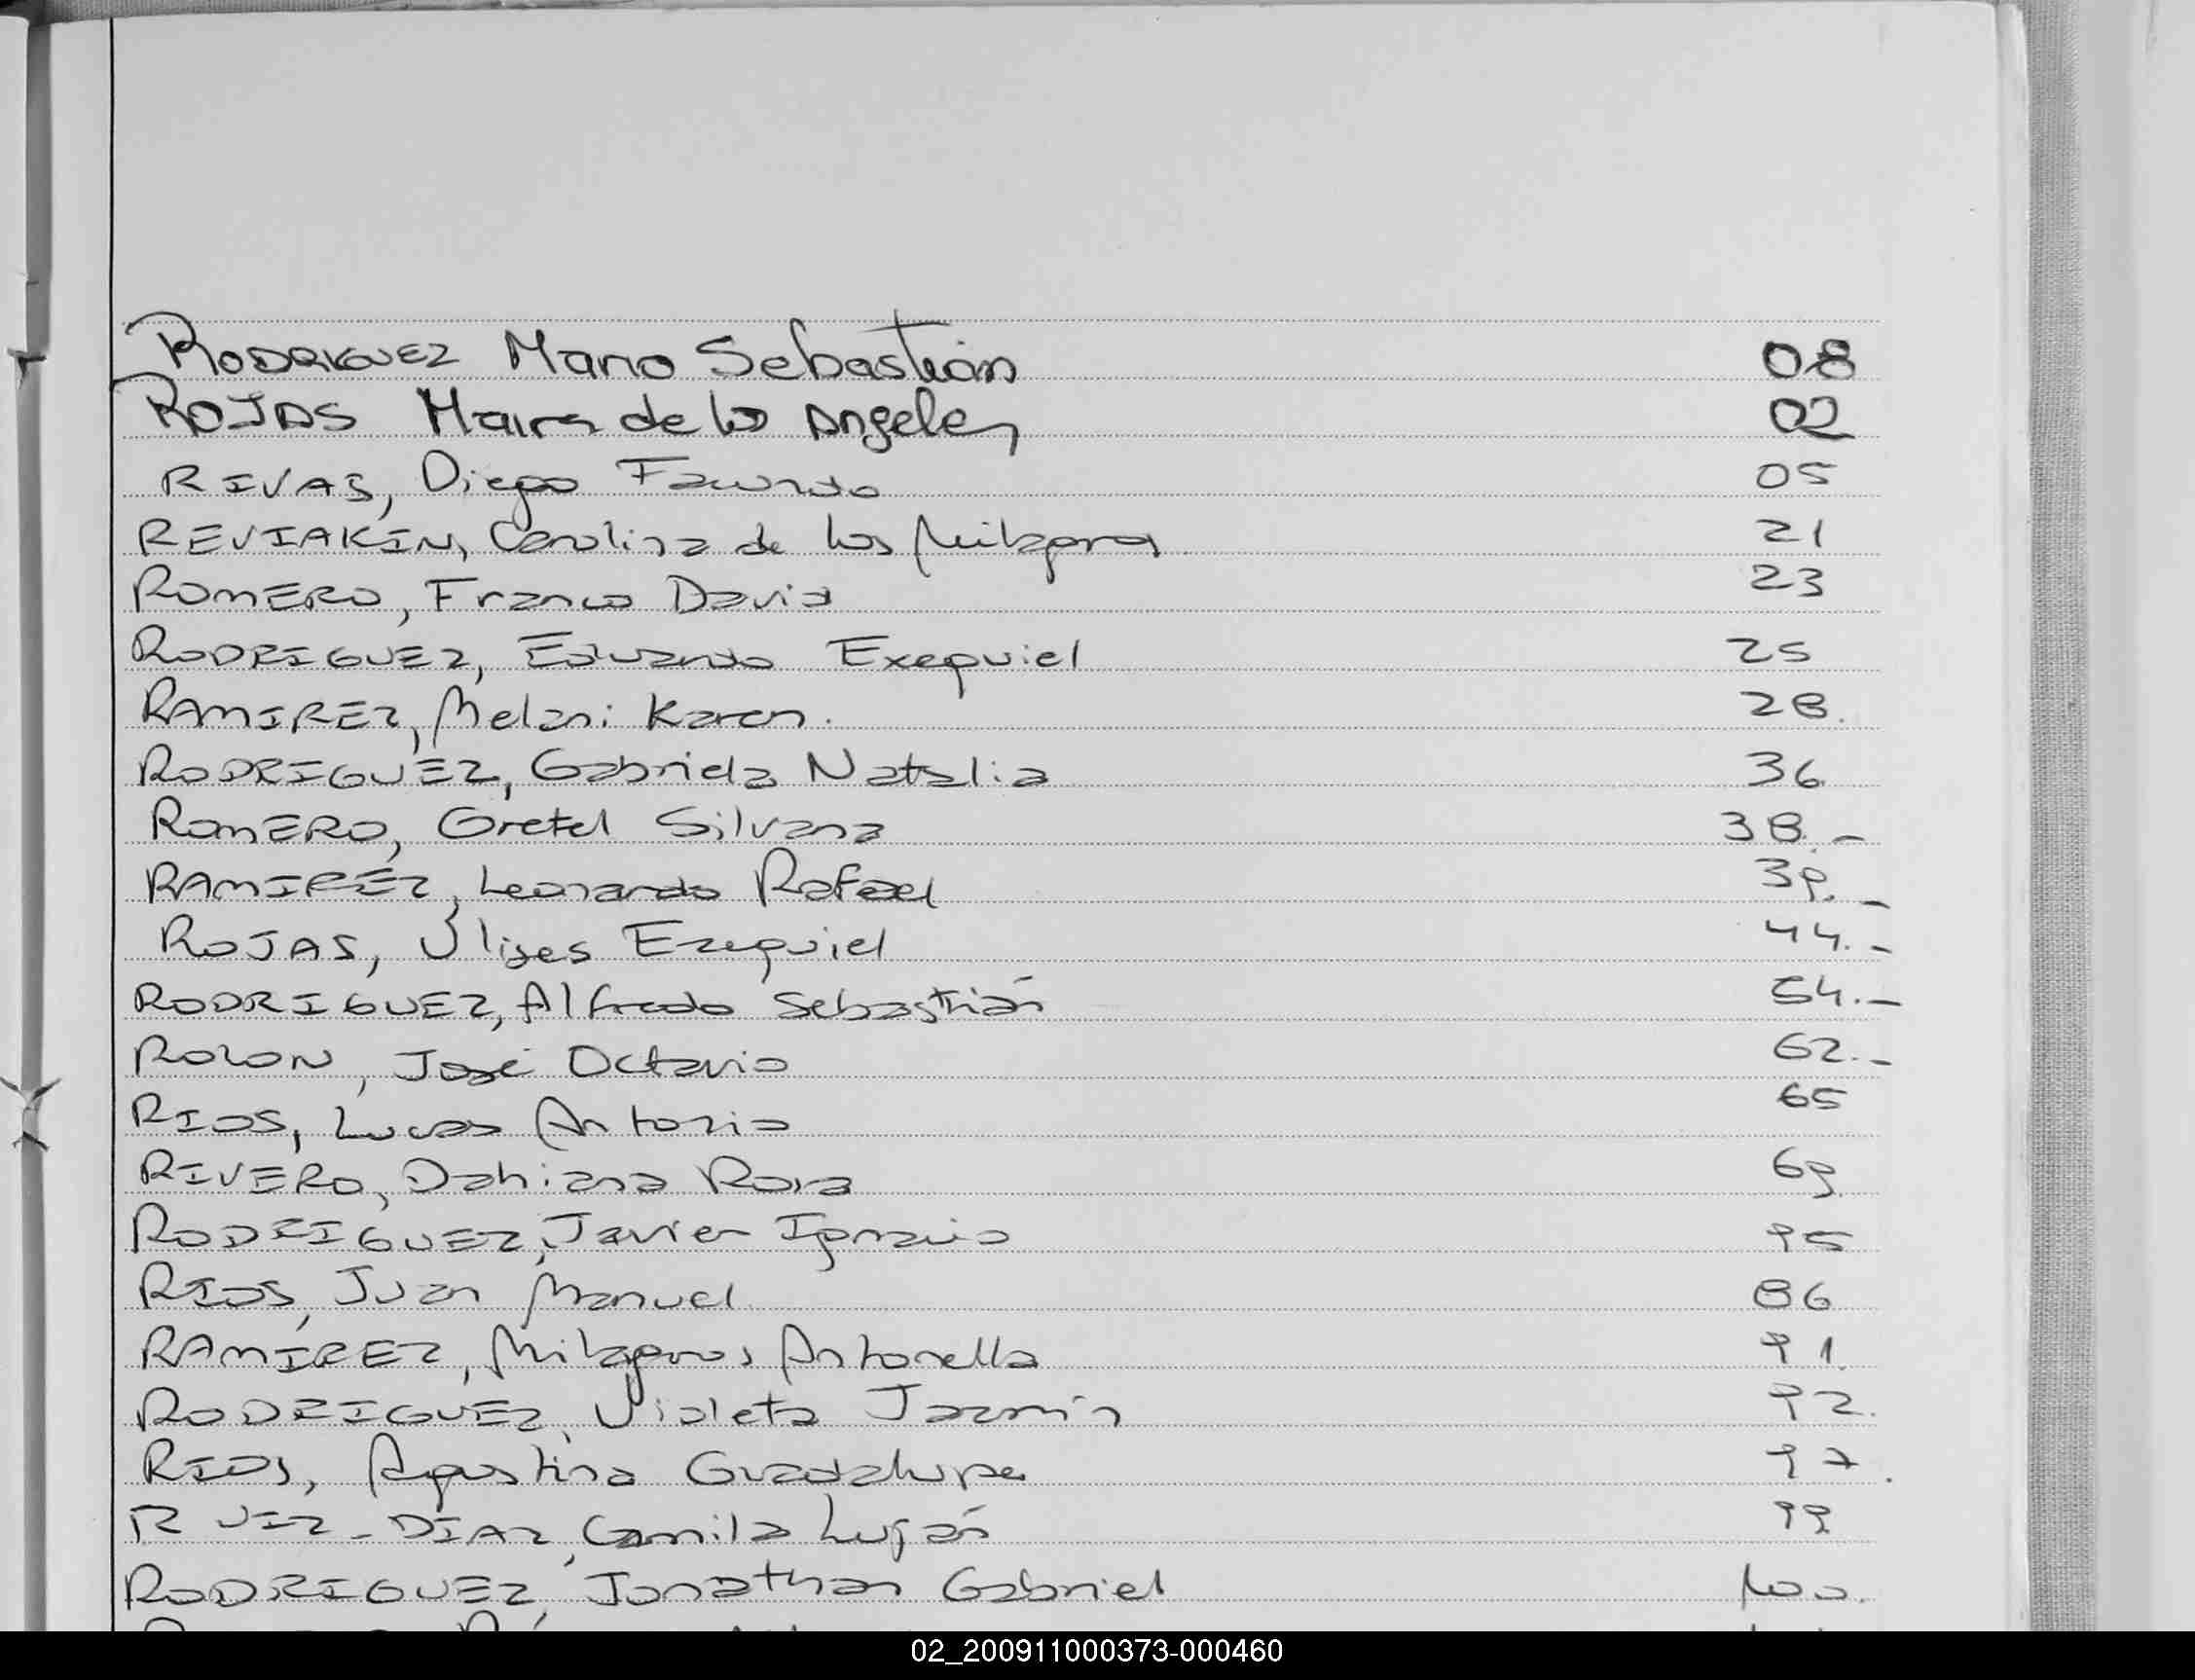 RODRIGUEZ Mario Sebastián 08
ROJAS Maira de los Angeles 02
RIVAS, Diego Facundo 05
REVIAKIN, Carolina de los Milagros 21
ROMERO, Franco David 23
RODRIGUEZ, Eduardo Exequiel 25
RAMIREZ, Melani Karen. 28.
RODRIGUEZ, Gabriela Natalia 36
ROMERO, Gretel Silvana 38.-
RAMIREZ, Leonardo Rafael 39.-
ROJAS, Ulises Ezequiel 44.-
RODRIGUEZ, Alfredo Sebastián 54.-
ROLON, José Octavio 62.-
RIOS, Lucas Antonio 65
RIVERO, Dahiana Rosa 69
RODRIGUEZ, Javier Ignacio
RIOS, Juan Manuel 86
RAMÍREZ, Milagros Antonella 91.
RODRIGUEZ, Violeta Jazmín 92.
RIOS, Agustina Guadalupe 97.
RUIZ-DIAZ, Camila Luján 99
RODRIGUEZ, Jonathan Gabriel 100.
02_200911000373-000460